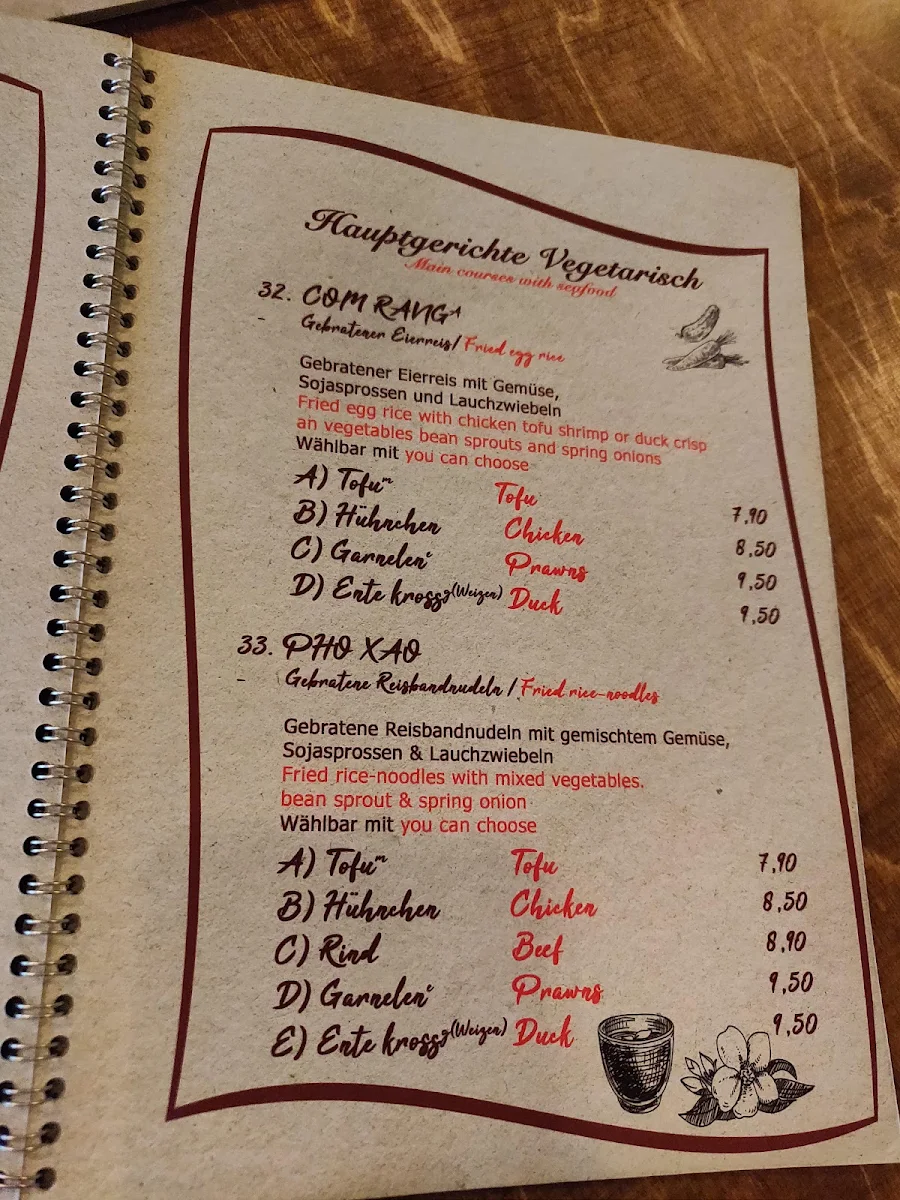 Hauptgerichte Vegetarisch
Main courses with seafood
32. COM RANG^A
Gebratener Eierreis/ Fried egg rice
Gebratener Eierreis mit Gemüse,
Sojasprossen und Lauchzwiebeln
Fried egg rice with chicken tofu shrimp or duck crisp
an vegetables bean sprouts and spring onions
Wählbar mit you can choose
A) Tofu^m Tofu 7,90
B) Hühnchen Chicken 8,50
C) Garnelen Prawns 9,50
D) Ente kross (Weizen) Duck 9,50
33. PHO XAO
Gebratene Reisbandnudeln / Fried rice-noodles
Gebratene Reisbandnudeln mit gemischtem Gemüse,
Sojasprossen & Lauchzwiebeln
Fried rice-noodles with mixed vegetables.
bean sprout & spring onion
Wählbar mit you can choose
A) Tofu^m Tofu 7,90
B) Hühnchen Chicken 8,50
C) Rind Beef 8,90
D) Garnelen Prawns 9,50
E) Ente kross (Weizen) Duck 9,50